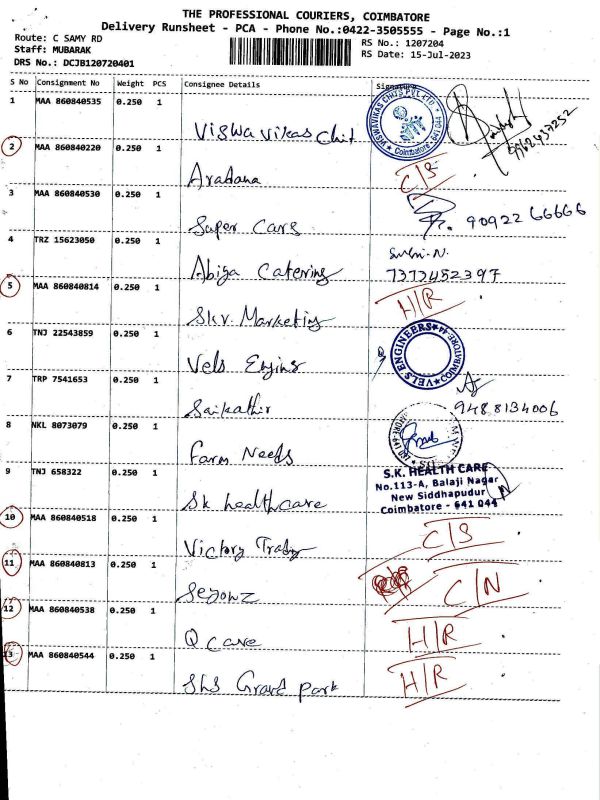 THE PROFESSIONAL COURIERS, COIMBATORE
Delivery Runsheet - PCA - Phone No.:0422-3505555 - Page No.:1
Route: C SAMY RD
RS No.: 1207204
Staff: MUBARAK
RS Date: 15-Jul-2023
DRS No.: DCJB120720401
S No Consignment No Weight PCS Consignee Details Signature
1 MAA 860840535 0.250 1 Viswa vikas Chit
VISWAVIKAS CHITS PVT LTD Coimbatore - 641 044
9962437252
2 MAA 860840220 0.250 1 Aradana C/S
3 MAA 860840530 0.250 1 Super Cars 90922 66666
4 TRZ 15623050 0.250 1 Abiya Catering 7373452397
5 MAA 860840814 0.250 1 Skv. Marketing H/R
6 TNJ 22543859 0.250 1 Vels Engins VELS ENGINEERS COIMBATORE-44
7 TRP 7541653 0.250 1 Saikathir 9488134006
8 NKL 8073079 0.250 1 Farm Needs
9 TNJ 658322 0.250 1 Sk healthcare
S.K. HEALTH CARE
No.113-A, Balaji Nagar
New Siddhapudur
Coimbatore - 641 044
10 MAA 860840518 0.250 1 Victory Trady C/S
11 MAA 860840813 0.250 1 Seyonz C/N
12 MAA 860840538 0.250 1 Q care H/R
13 MAA 860840544 0.250 1 Shs Grand park H/R